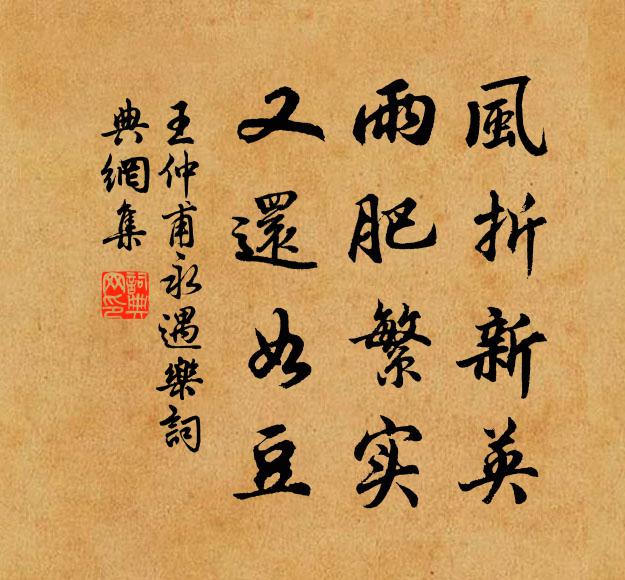 風折新英
雨肥繁实
又還如豆
王仲甫永遇樂詞
典網集
詞典網印